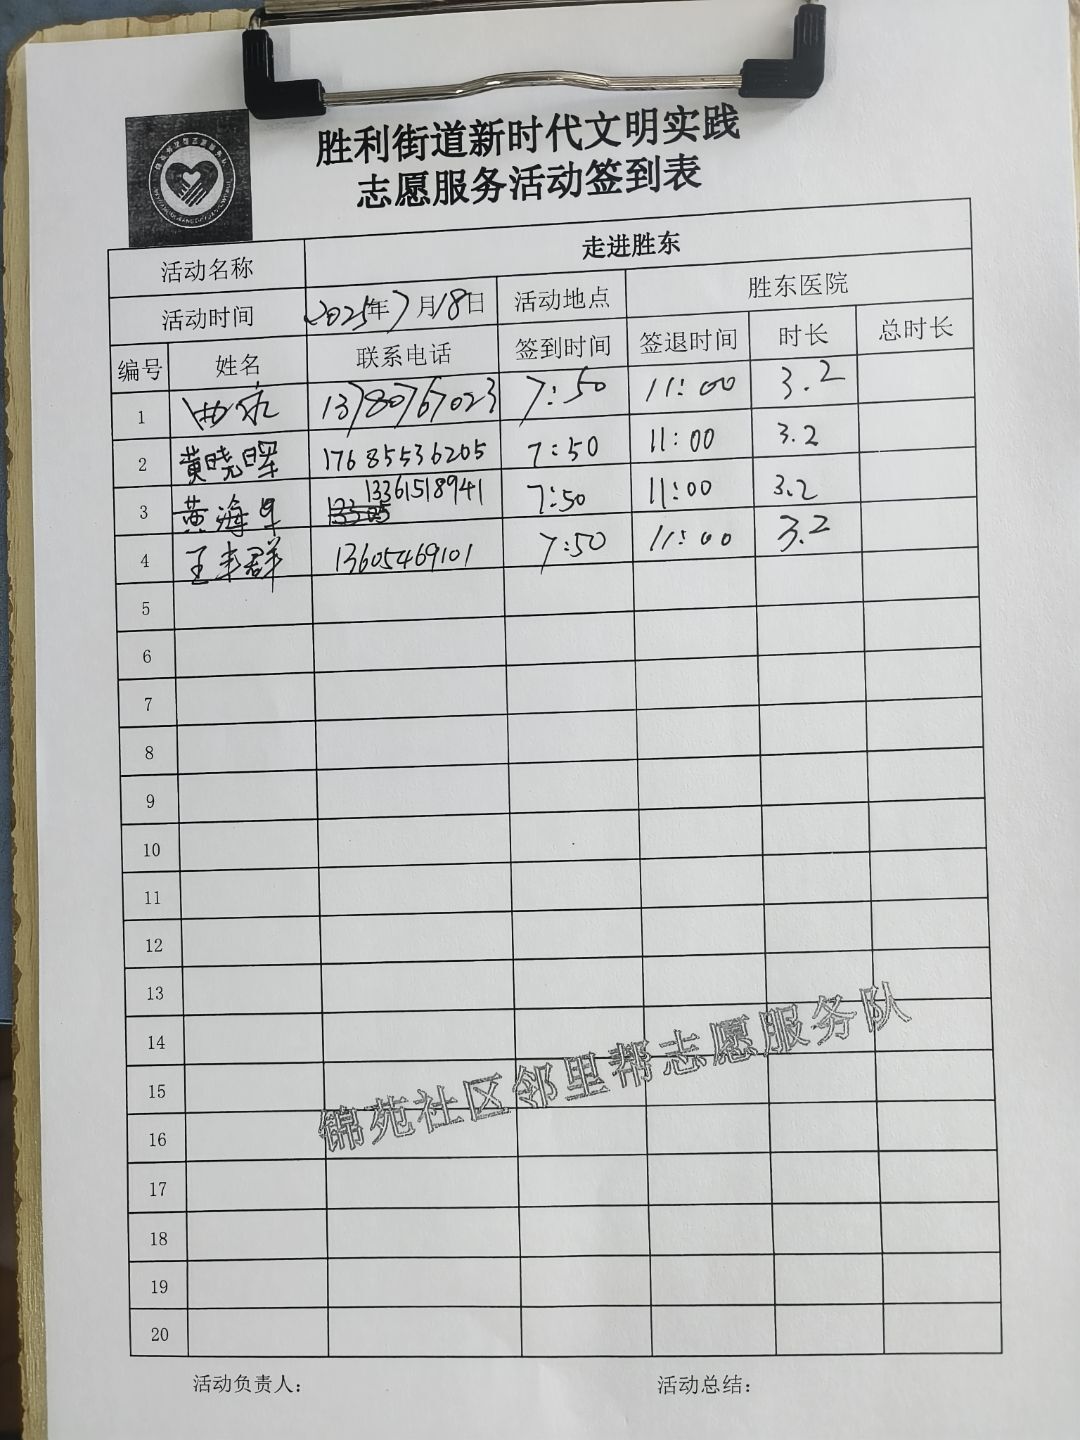 胜利街道新时代文明实践
志愿服务活动签到表
活动名称 走进胜东
活动时间 2025年7月18日 活动地点 胜东医院
编号 姓名 联系电话 签到时间 签退时间 时长 总时长
1 13780767023 7:50 11:00 3.2
2 黄晓晖 17685536205 7:50 11:00 3.2
3 黄海 13361518941 7:50 11:00 3.2
4 王丰群 13605469101 7:50 11:00 3.2
5
6
7
8
9
10
11
12
13
14
15
16
17
18
19
20
锦苑社区邻里帮志愿服务队
活动负责人: 活动总结: